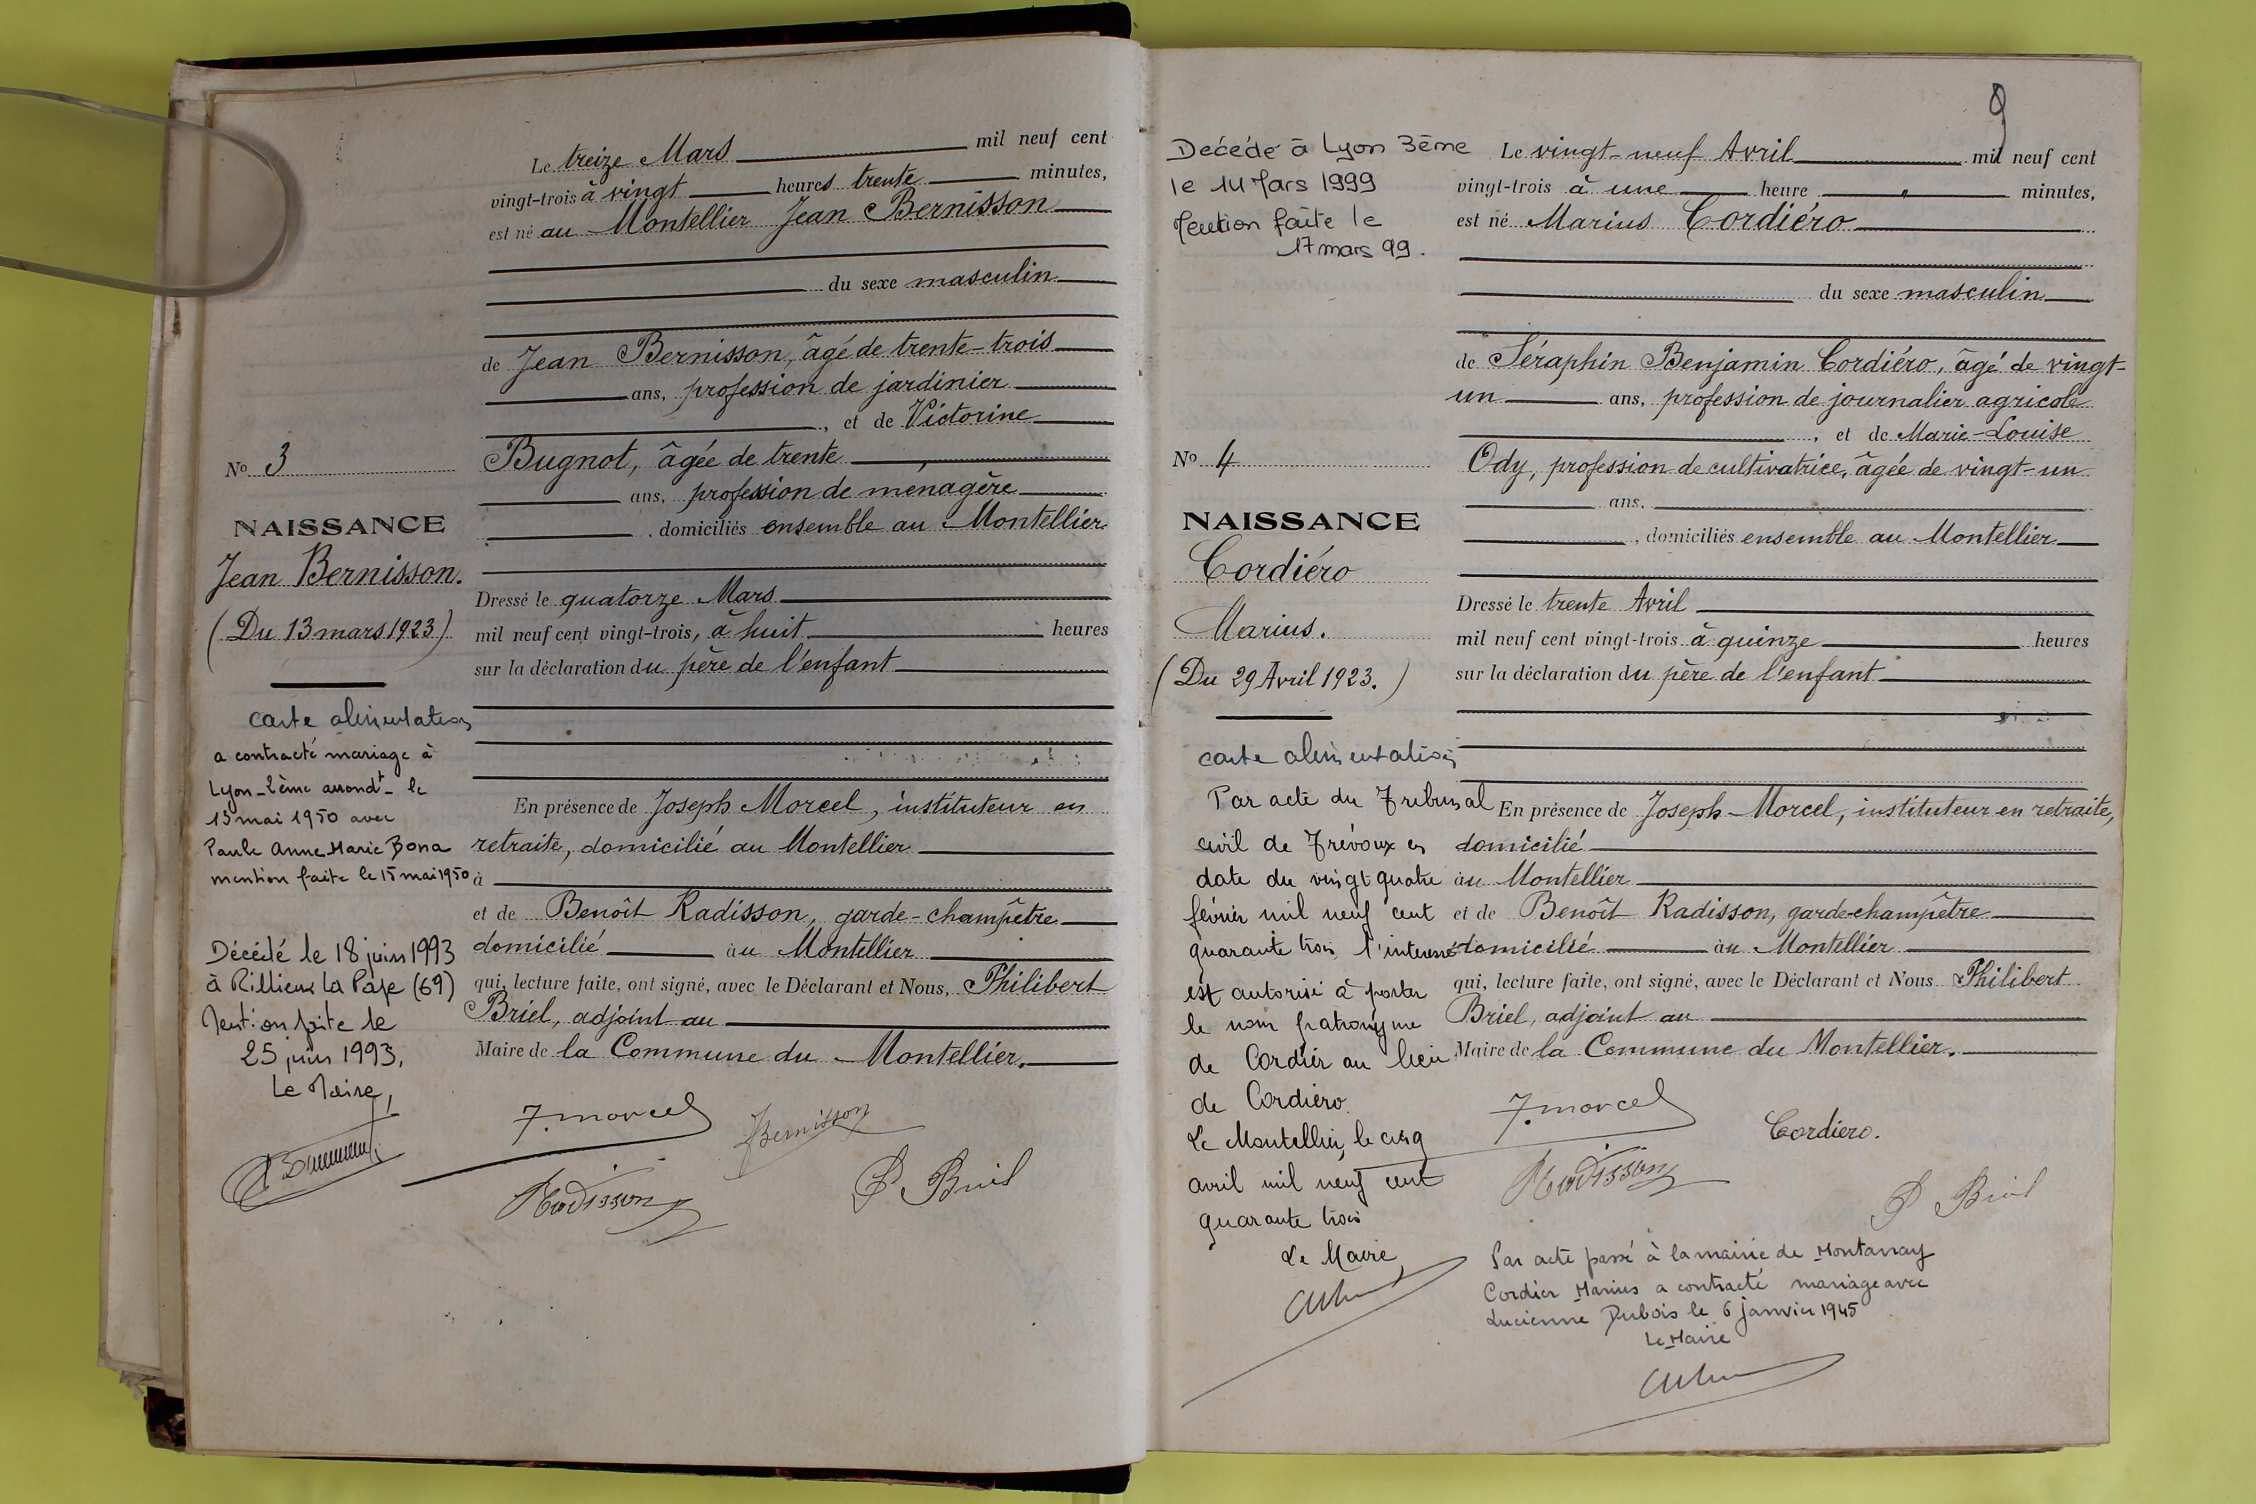 Le treize Mars mil neuf cent
vingt-trois à vingt heures trente minutes,
est né au Montellier Jean Bernisson
du sexe masculin
de Jean Bernisson, âgé de trente-trois
ans, profession de jardinier
, et de Victorine
Bugnot, âgée de trente
ans, profession de ménagère
, domiciliés ensemble au Montellier
Dressé le quatorze Mars
mil neuf cent vingt-trois, à huit heures
sur la déclaration du père de l'enfant
En présence de Joseph Morcel, instituteur en
retraite, domicilié au Montellier
à
et de Benoît Radisson, garde-champêtre
domicilié au Montellier
qui, lecture faite, ont signé, avec le Déclarant et Nous, Philibert
Briel, adjoint au
Maire de la Commune du Montellier.
J. Morcel
JBernisson
Radisson
P Briel
No 3
NAISSANCE
Jean Bernisson.
(Du 13 mars 1923)
carte alimentation
a contracté mariage à
Lyon-2ème arrondt- le
13 mai 1950 avec
Paule Anne Marie Bona
mention faite le 15 mai 1950
Décédé le 18 juin 1993
à Rillieux La Pape (69)
Mention faite le
25 juin 1993,
Le Maire,
9
Décédé à Lyon 3ème
le 14 Mars 1999
Mention faite le
17 mars 99.
No 4
NAISSANCE
Cordiéro
Marius.
(Du 29 Avril 1923.)
carte alimentation
Par acte du Tribunal
civil de Trévoux en
date du vingt quatre
février mil neuf cent
quarante trois l'interessé
est autorisé à porter
le nom patronyme
de Cordier au lieu
de Cordiéro
Le Montellier, le cinq
avril mil neuf cent
quarante trois
Le Maire,
Le vingt-neuf Avril mil neuf cent
vingt-trois à une heure " minutes,
est né Marius Cordiéro
du sexe masculin
de Séraphin Benjamin Cordiéro, âgé de vingt-
un ans, profession de journalier agricole
, et de Marie-Louise
Ody, profession de cultivatrice, âgée de vingt-un
ans,
, domiciliés ensemble au Montellier
Dressé le trente Avril
mil neuf cent vingt-trois à quinze heures
sur la déclaration du père de l'enfant
En présence de Joseph Morcel, instituteur en retraite,
domicilié
au Montellier
et de Benoît Radisson, garde-champêtre
domicilié au Montellier
qui, lecture faite, ont signé, avec le Déclarant et Nous Philibert
Briel, adjoint au
Maire de la Commune du Montellier.
J. Morcel
Cordiero.
Radisson
P Briel
Par acte passé à la mairie de Montanay
Cordier Marius a contracté mariage avec
Lucienne Dubois le 6 janvier 1945
Le Maire